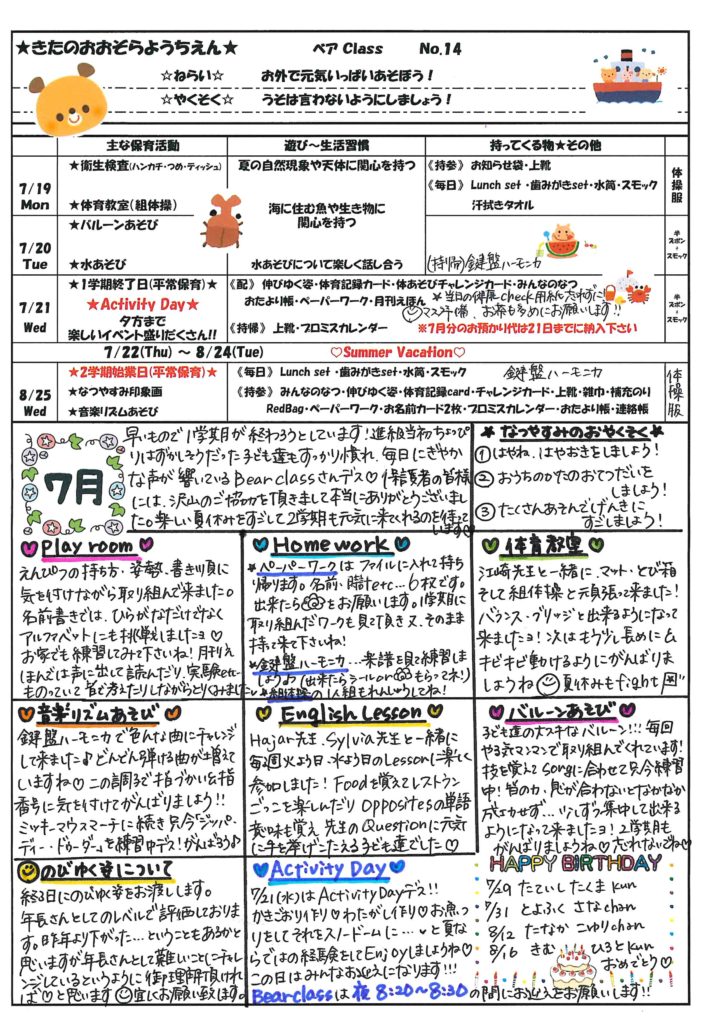 ★きたのおおぞらようちえん★ ベア Class No.14
☆ねらい☆ お外で元気いっぱいあそぼう！
☆やくそく☆ うそは言わないようにしましょう！
主な保育活動 遊び～生活習慣 持ってくる物★その他
7/19
Mon
★衛生検査(ハンカチ・つめ・ティッシュ)
★体育教室(組体操)
夏の自然現象や天体に関心を持つ
《持参》 お知らせ袋・上靴
《毎日》 Lunch set ・歯みがきset・水筒・スモック
汗拭きタオル
体操服
7/20
Tue
★バルーンあそび
★水あそび
海に住む魚や生き物に
関心を持つ
水あそびについて楽しく話し合う
(持帰)鍵盤ハーモニカ
半ズボン＝スモック
7/21
Wed
★1学期終了日(平常保育)★
★Activity Day★
夕方まで
楽しいイベント盛りだくさん!!
《配》 伸びゆく姿・体育記録カード・体あそびチャレンジカード・みんなのなつ
おたより帳・ペーパーワーク・月刊えほん
★当日の健康check用紙忘れずに!
マスク予備、お茶も多めにお願いします!!
《持帰》 上靴・プロミスカレンダー ※7月分のお預かり代は21日までに納入下さい
半ズボン＝スモック
7/22(Thu) ～ 8/24(Tue) ♡Summer Vacation♡
8/25
Wed
★2学期始業日(平常保育)★
★なつやすみ印象画
★音楽リズムあそび
《毎日》 Lunch set ・歯みがきset・水筒・スモック 鍵盤ハーモニカ
《持参》 みんなのなつ・伸びゆく姿・体育記録card・チャレンジカード・上靴・雑巾・補充のり
RedBag・ペーパーワーク・お名前カード2枚・プロミスカレンダー・おたより帳・連絡帳
体操服
7月
早いもので1学期が終わろうとしています！進級当初ちょっぴ
りはずかしそうだった子ども達もすっかり慣れ、毎日にぎやか
な声が響いているBear classさんデス♡保護者の皆様
には、沢山のご協力を頂きまして本当にありがとうございまし
た。楽しい夏休みをすごして2学期も元気に来てくれるのを待って
います
★なつやすみのおやくそく★
①はやね、はやおきをしましょう！
②おうちのかたのおてつだいを
しましょう！
③たくさんあそんでげんきに
すごしましょう！
Play room
えんぴつの持ち方・姿勢・書き順に
気を付けながら取り組んで来ました。
名前書きでは、ひらがなだけでなく
アルファベットにも挑戦しましたヨ♡
お家でも練習してみて下さいね！月刊え
ほんでは声に出して読んだり、実験etc…
ものっていて皆で考えたりしながらとりくみました
Home work
★ペーパーワークはファイルに入れて持ち
帰ります。名前・時計etc…6枚です。
出来たら をお願いします。1学期に
取り組んだワークも見て頂き又、そのまま
持って来て下さいね！
★鍵盤ハーモニカ…楽譜を見て練習しま
しょう♪(出来たらシールor もらってネ！)
★組体操の1人組もれんしゅうしてね！
体育教室
江崎先生と一緒に、マット・とび箱
そして組体操と元気に頑張って来ました！
バランス・ブリッジと出来るようになって
来ましたヨ！次はもう少し長めにム
キビキビ動けるようにがんばりま
しょうね 夏休みもfight
音楽リズムあそび
鍵盤ハーモニカで色んな曲にチャレンジ
して来ました♪どんどん弾ける曲が増えて
いますね♡この調子で指づかい&指
番号に気を付けてがんばりましょう!!
ミッキーマウスマーチに続き只今「ジッパ・
ディー・ドゥーダー」を練習中デス！がんばろう♪
English Lesson
Hajar先生、Sylvia先生と一緒に
毎週火よう日・水よう日のLessonに楽しく
参加しました！Foodを覚えてレストラン
ごっこを楽しんだりOppositesの単語
意味も覚え先生のQuestionに元気
に手を挙げこたえる子ども達でした♡
バルーンあそび
子ども達の大スキなバルーン!!!毎回
やる気マンマンで取り組んでくれています！
技を覚えてsongに合わせて只今練習
中！皆の力、息が合わないとなかなか
成工かせず…少しずつ集中して出来る
ようになって来ましたヨ！2学期も
がんばりましょうね♡忘れないでね♡
のびゆく姿について
終る日にのびゆく姿をお渡しします。
年長さんとしてのレベルで評価しておりま
す。昨年より下がった…ということもあるかと
思いますが年長さんとして難しいことにチャレ
ンジしているというように御理解頂ければ
♡と思います 宜しくお願い致します。
Activity Day
7/21(水)はActivity Dayデス!!
かきごおり作り♡わたがし作り♡お魚っ
りをしてそれをスノードームに…♡と夏な
らではの経験をしてEnjoyしましょうね♡
この日はみんなお迎えになります!!!
Bear classは夜8:20～8:30の間にお迎えをお願いします!!
HAPPY BIRTHDAY
7/29 たていし たくまkun
7/31 とよふく さなchan
8/12 たなか こゆりchan
8/16 きむら ひろとkun
おめでとう♡